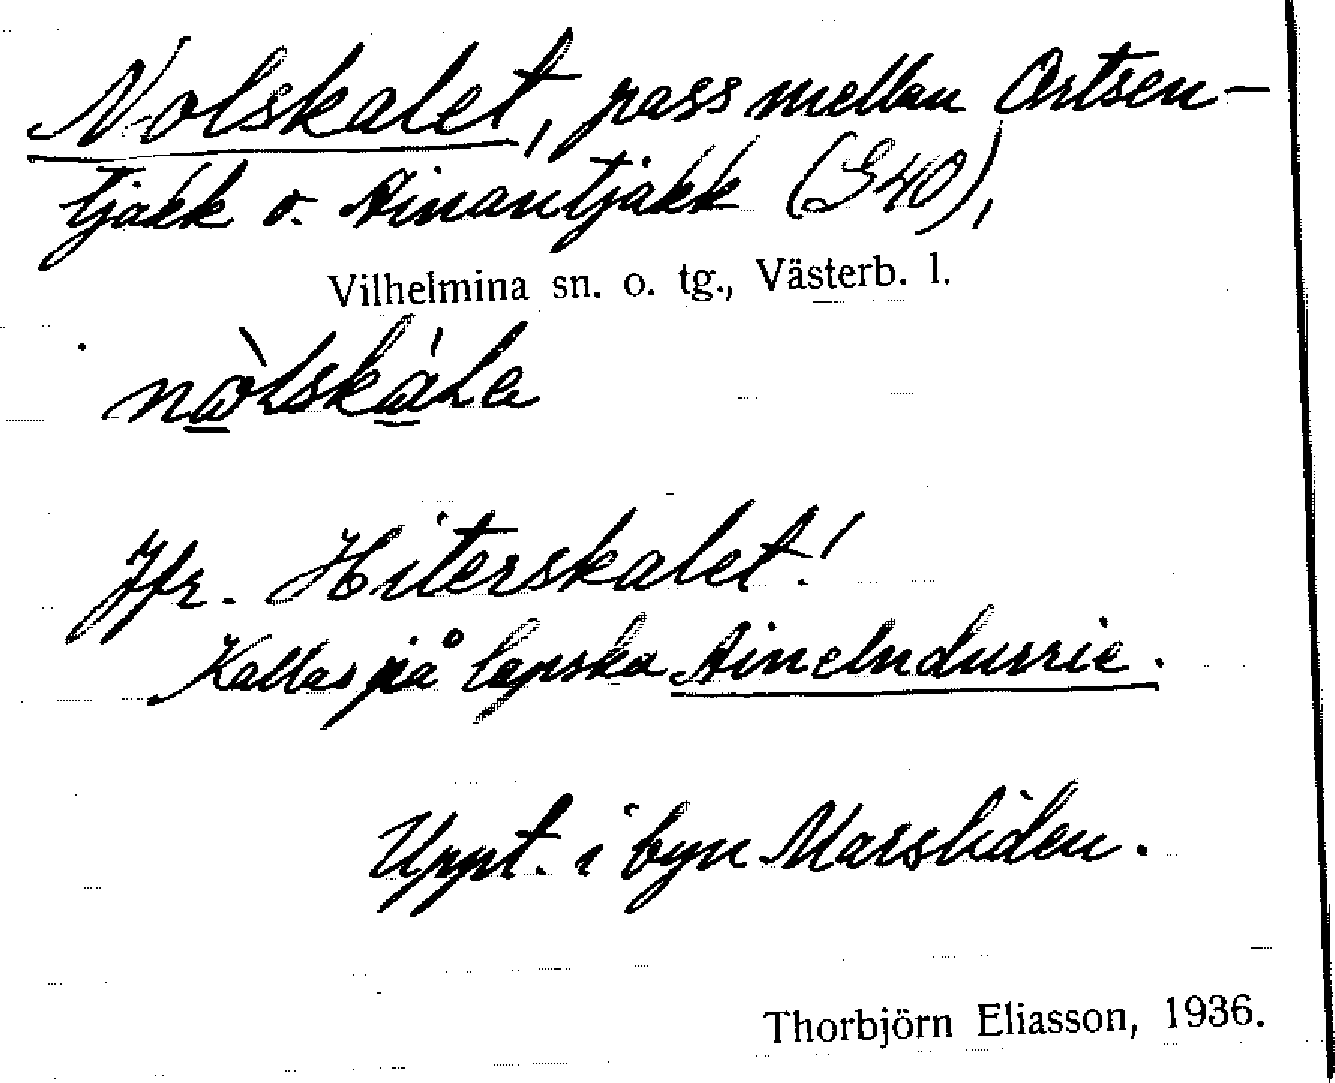 Nolskalet, pass mellan Ortsen-
tjakk o. Ainantjakk (S40),
Vilhelmina sn. o. tg., Västerb. l.
nòlskáLa
Jfr. Hiterskalet!
Kallas på lapska Ainelndurrie.
Uppt. i byn Marsliden.
Thorbjörn Eliasson, 1936.